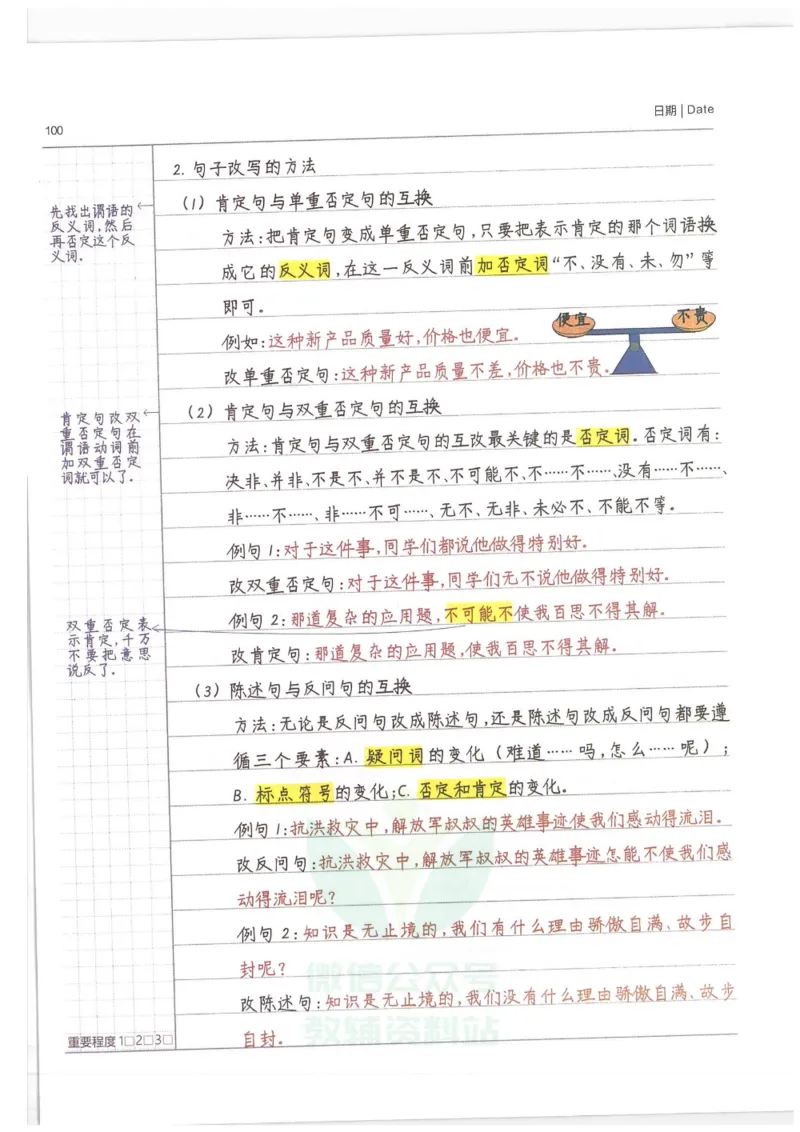 日期 | Date
100
2. 句子改写的方法
(1) 肯定句与单重否定句的互换
先找出谓语的
反义词,然后
再否定这个反
义词.
方法:把肯定句变成单重否定句,只要把表示肯定的那个词语换
成它的反义词,在这一反义词前加否定词“不、没有、未、勿”等
即可.
便宜
不贵
例如:这种新产品质量好,价格也便宜.
改单重否定句:这种新产品质量不差,价格也不贵.
(2) 肯定句与双重否定句的互换
肯定句改双
重否定句在
谓语动词前
加双重否定
词就可以了.
方法:肯定句与双重否定句的互改最关键的是否定词.否定词有:
决非、并非、不是不、并不是不、不可能不、不……不……、没有……不……、
非……不……、非……不可……、无不、无非、未必不、不能不等.
例句1:对于这件事,同学们都说他做得特别好.
改双重否定句:对于这件事,同学们无不说他做得特别好.
例句2:那道复杂的应用题,不可能不使我百思不得其解.
双重否定表
示肯定,千万
不要把意思
说反了.
改肯定句:那道复杂的应用题,使我百思不得其解.
(3) 陈述句与反问句的互换
方法:无论是反问句改成陈述句,还是陈述句改成反问句都要遵
循三个要素:A. 疑问词的变化(难道……吗,怎么……呢);
B. 标点符号的变化;C. 否定和肯定的变化.
例句1:抗洪救灾中,解放军叔叔的英雄事迹使我们感动得流泪.
改反问句:抗洪救灾中,解放军叔叔的英雄事迹怎能不使我们感
动得流泪呢?
例句2:知识是无止境的,我们有什么理由骄傲自满、故步自
封呢?
微信公众号
改陈述句:知识是无止境的,我们没有什么理由骄傲自满、故步
自封.
教辅资料站
重要程度 1□2□3□